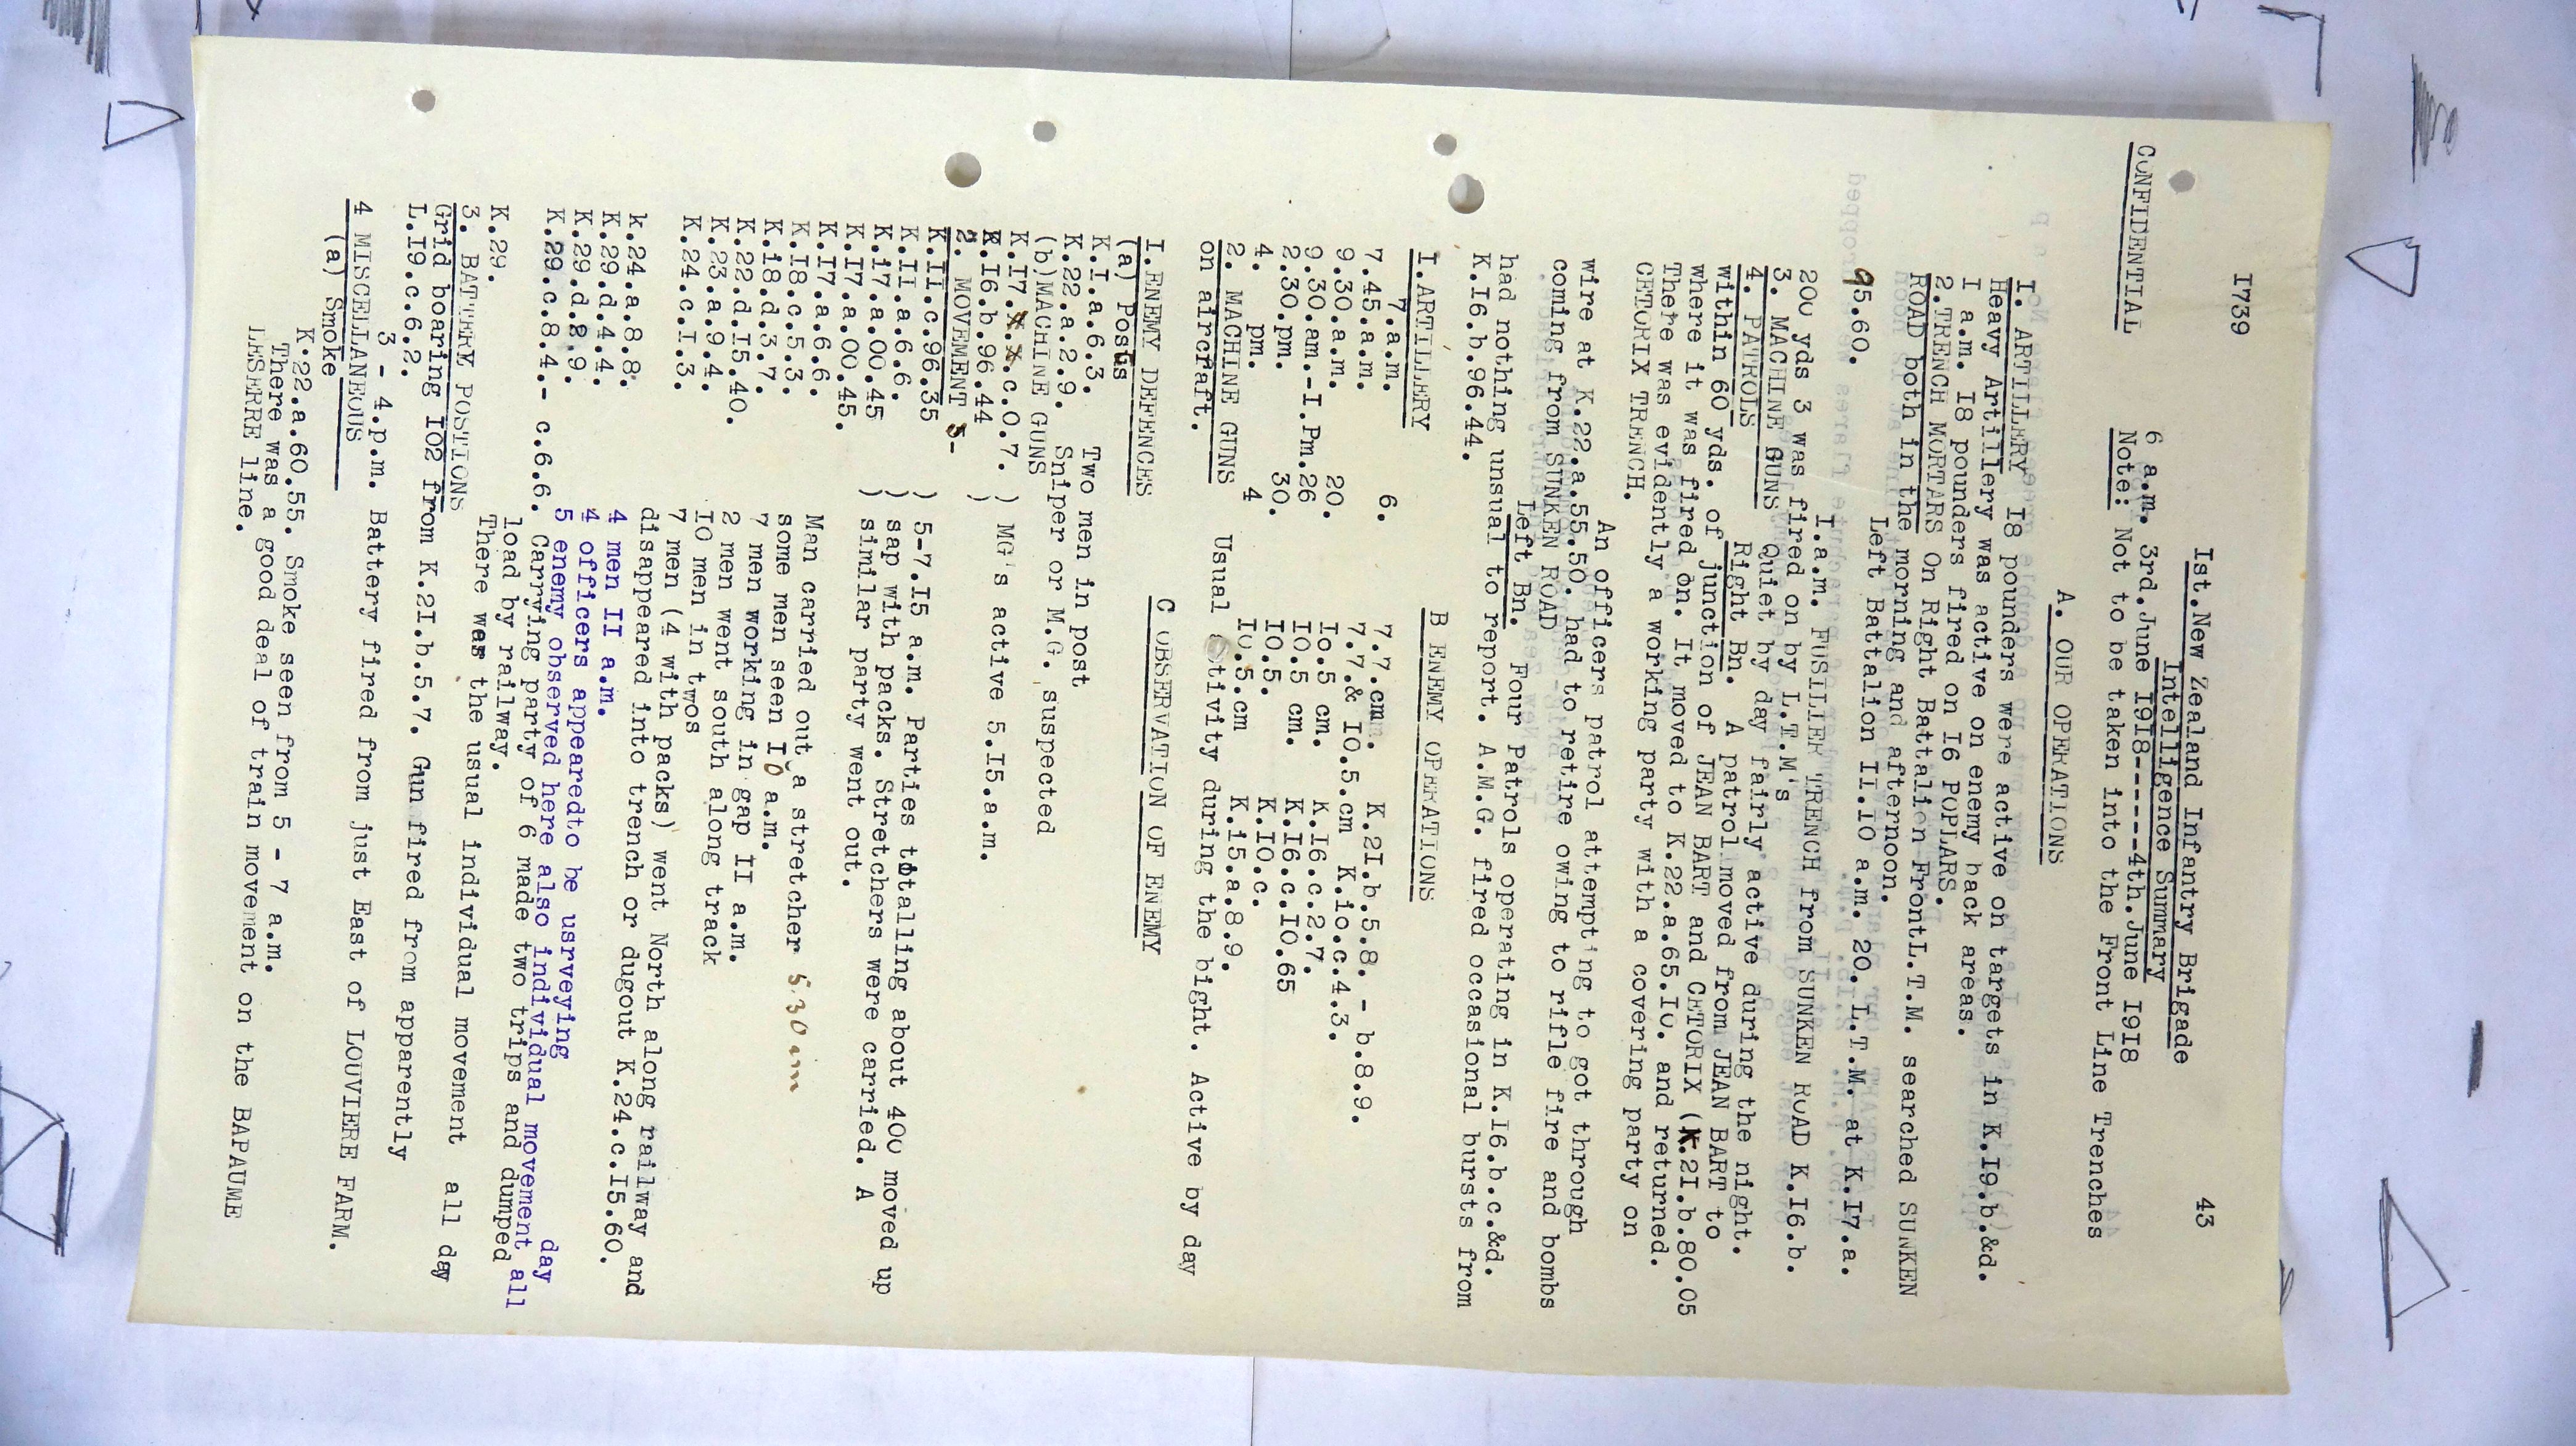 I739
43
Ist.New Zealand Infantry Brigade
Intelligence Summary
CONFIDENTIAL
6 a.m. 3rd.June I9I8-----4th.June I9I8
Note: Not to be taken into the Front Line Trenches
A. OUR OPERATIONS
I. ARTILLERY I8 pounders were active on targets in K.I9.b.&d.
Heavy Artillery was active on enemy back areas.
I a.m. I8 pounders fired on I6 POPLARS.
2.TRENCH MORTARS On Right Battalion FrontL.T.M. searched SUNKEN
ROAD both in the morning and afternoon.
Left Battalion II.IO a.m. 20. L.T.M. at K.I7.a.
95.60.
I.a.m. FUSILIER TRENCH from SUNKEN ROAD K.I6.b.
200 yds 3 was fired on by L.T.M's
3. MACHINE GUNS Quiet by day fairly active during the night.
4. PATROLS Right Bn. A patrol moved from JEAN BART to
within 60 yds. of junction of JEAN BART and CETORIX (K.2I.b.80.05
where it was fired on. It moved to K.22.a.65.Io. and returned.
There was evidently a working party with a covering party on
CETORIX TRENCH.
An officers patrol attempting to got through
wire at K.22.a.55.50. had to retire owing to rifle fire and bombs
coming from SUNKEN ROAD
Left Bn. Four Patrols operating in K.I6.b.c.&d.
had nothing unsual to report. A.M.G. fired occasional bursts from
K.I6.b.96.44.
B ENEMY OPERATIONS
I.ARTILLERY
7.a.m. 6. 7.7.cm. K.2I.b.5.8. - b.8.9.
7.45.a.m. 7.7.& IO.5.cm K.io.c.4.3.
9.30.a.m. 20. Io.5 cm. K.I6.c.2.7.
9.30.am.-I.Pm.26 IO.5 cm. K.I6.c.IO.65
2.30.pm. 30. IO.5. K.IO.c.
4. pm. 4 Io.5.cm K.i5.a.8.9.
2. MACHINE GUNS Usual activity during the hight. Active by day
on aircraft.
C OBSERVATION OF ENEMY
I.ENEMY DEFENCES
(a) Posts
K.I.a.6.3. Two men in post
K.22.a.2.9. Sniper or M.G. suspected
(b)MACHINE GUNS
K.I7.c.0.7. ) MG's active 5.I5.a.m.
K.I6.b.96.44 )
2. MOVEMENT 5-
K.II.c.96.35 ) 5-7.I5 a.m. Parties totalling about 400 moved up
K.II.a.6.6. ) sap with packs. Stretchers were carried. A
K.i7.a.00.45 ) similar party went out.
K.I7.a.00.45.
K.I7.a.6.6. Man carried out a stretcher 5.30 am
K.I8.c.5.3. some men seen I0 a.m.
K.i8.d.3.7. 7 men working in gap II a.m.
K.22.d.I5.40. 2 men went south along track
K.23.a.9.4. IO men in twos
K.24.c.I.3. 7 men (4 with packs) went North along railway and
disappeared into trench or dugout K.24.c.I5.60.
k.24.a.8.8. 4 men II a.m.
K.29.d.4.4. 4 officers appearedto be usrveying
K.29.d.2.9. 5 enemy observed here also individual movement all day
K.29.c.8.4.- c.6.6. Carrying party of 6 made two trips and dumped
load by railway.
K.29. There was the usual individual movement all day
3. BATTERY POSITIONS
Grid boaring I02 from K.2I.b.5.7. Gun fired from apparently
L.I9.c.6.2.
3 - 4.p.m. Battery fired from just East of LOUVIERE FARM.
4 MISCELLANEOUS
(a) Smoke
K.22.a.60.55. Smoke seen from 5 - 7 a.m.
There was a good deal of train movement on the BAPAUME
LESERRE line.